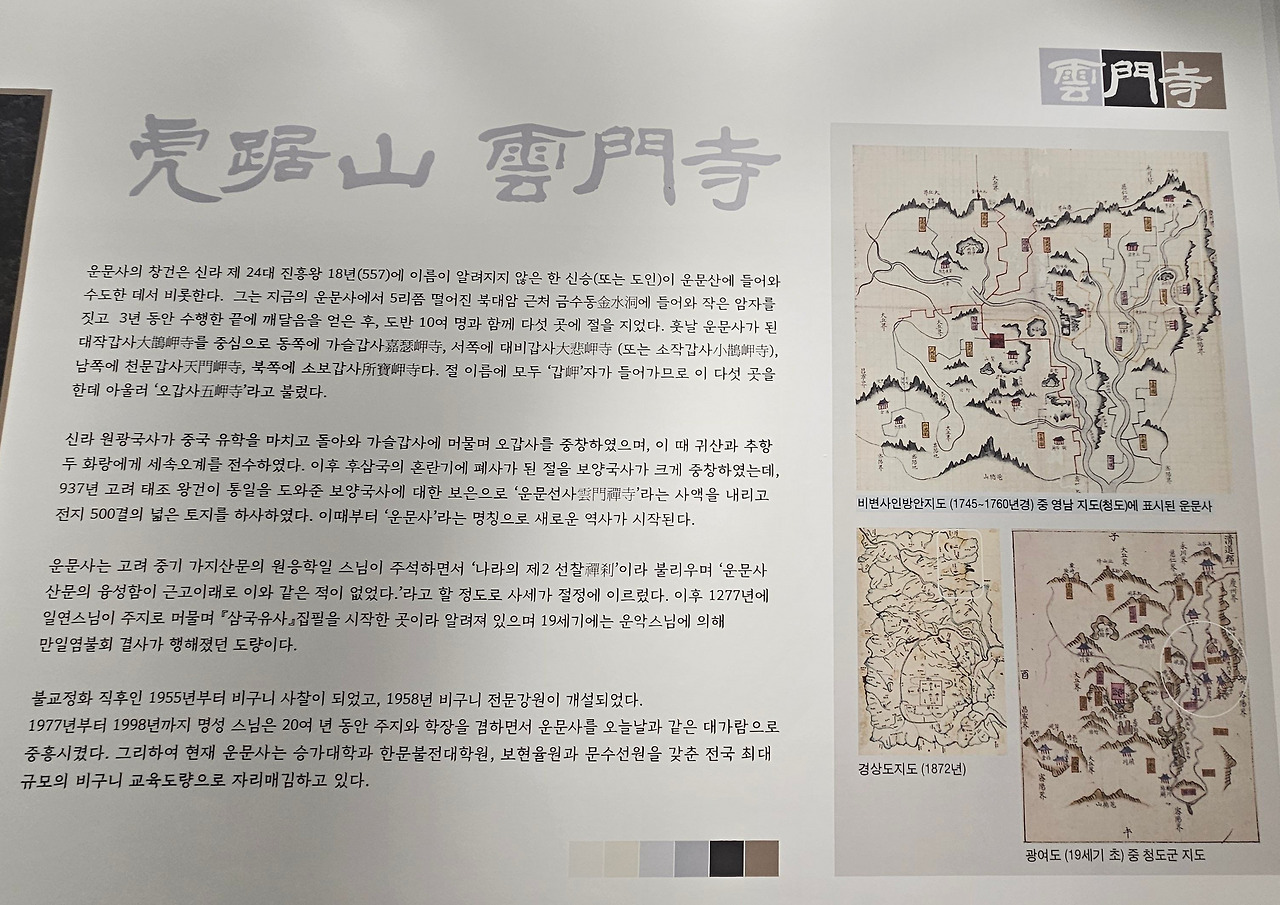 雲門寺
虎踞山 雲門寺
운문사의 창건은 신라 제 24대 진흥왕 18년(557)에 이름이 알려지지 않은 한 신승(또는 도인)이 운문산에 들어와
수도한 데서 비롯한다. 그는 지금의 운문사에서 5리쯤 떨어진 북대암 근처 금수동金水洞에 들어와 작은 암자를
짓고 3년 동안 수행한 끝에 깨달음을 얻은 후, 도반 10여 명과 함께 다섯 곳에 절을 지었다. 훗날 운문사가 된
대작갑사大鵲岬寺를 중심으로 동쪽에 가슬갑사嘉瑟岬寺, 서쪽에 대비갑사大悲岬寺 (또는 소작갑사小鵲岬寺),
남쪽에 천문갑사天門岬寺, 북쪽에 소보갑사所寶岬寺다. 절 이름에 모두 ‘갑岬’자가 들어가므로 이 다섯 곳을
한데 아울러 ‘오갑사五岬寺’라고 불렀다.
신라 원광국사가 중국 유학을 마치고 돌아와 가슬갑사에 머물며 오갑사를 중창하였으며, 이 때 귀산과 추항
두 화랑에게 세속오계를 전수하였다. 이후 후삼국의 혼란기에 폐사가 된 절을 보양국사가 크게 중창하였는데,
937년 고려 태조 왕건이 통일을 도와준 보양국사에 대한 보은으로 ‘운문선사雲門禪寺’라는 사액을 내리고
전지 500결의 넓은 토지를 하사하였다. 이때부터 ‘운문사’라는 명칭으로 새로운 역사가 시작된다.
운문사는 고려 중기 가지산문의 원응학일 스님이 주석하면서 ‘나라의 제2 선찰禪刹’이라 불리우며 ‘운문사
산문의 융성함이 근고이래로 이와 같은 적이 없었다.’라고 할 정도로 사세가 절정에 이르렀다. 이후 1277년에
일연스님이 주지로 머물며 『삼국유사』집필을 시작한 곳이라 알려져 있으며 19세기에는 운악스님에 의해
만일염불회 결사가 행해졌던 도량이다.
불교정화 직후인 1955년부터 비구니 사찰이 되었고, 1958년 비구니 전문강원이 개설되었다.
1977년부터 1998년까지 명성 스님은 20여 년 동안 주지와 학장을 겸하면서 운문사를 오늘날과 같은 대가람으로
중흥시켰다. 그리하여 현재 운문사는 승가대학과 한문불전대학원, 보현율원과 문수선원을 갖춘 전국 최대
규모의 비구니 교육도량으로 자리매김하고 있다.
비변사인방안지도 (1745~1760년경) 중 영남 지도(청도)에 표시된 운문사
경상도지도 (1872년)
광여도 (19세기 초) 중 청도군 지도